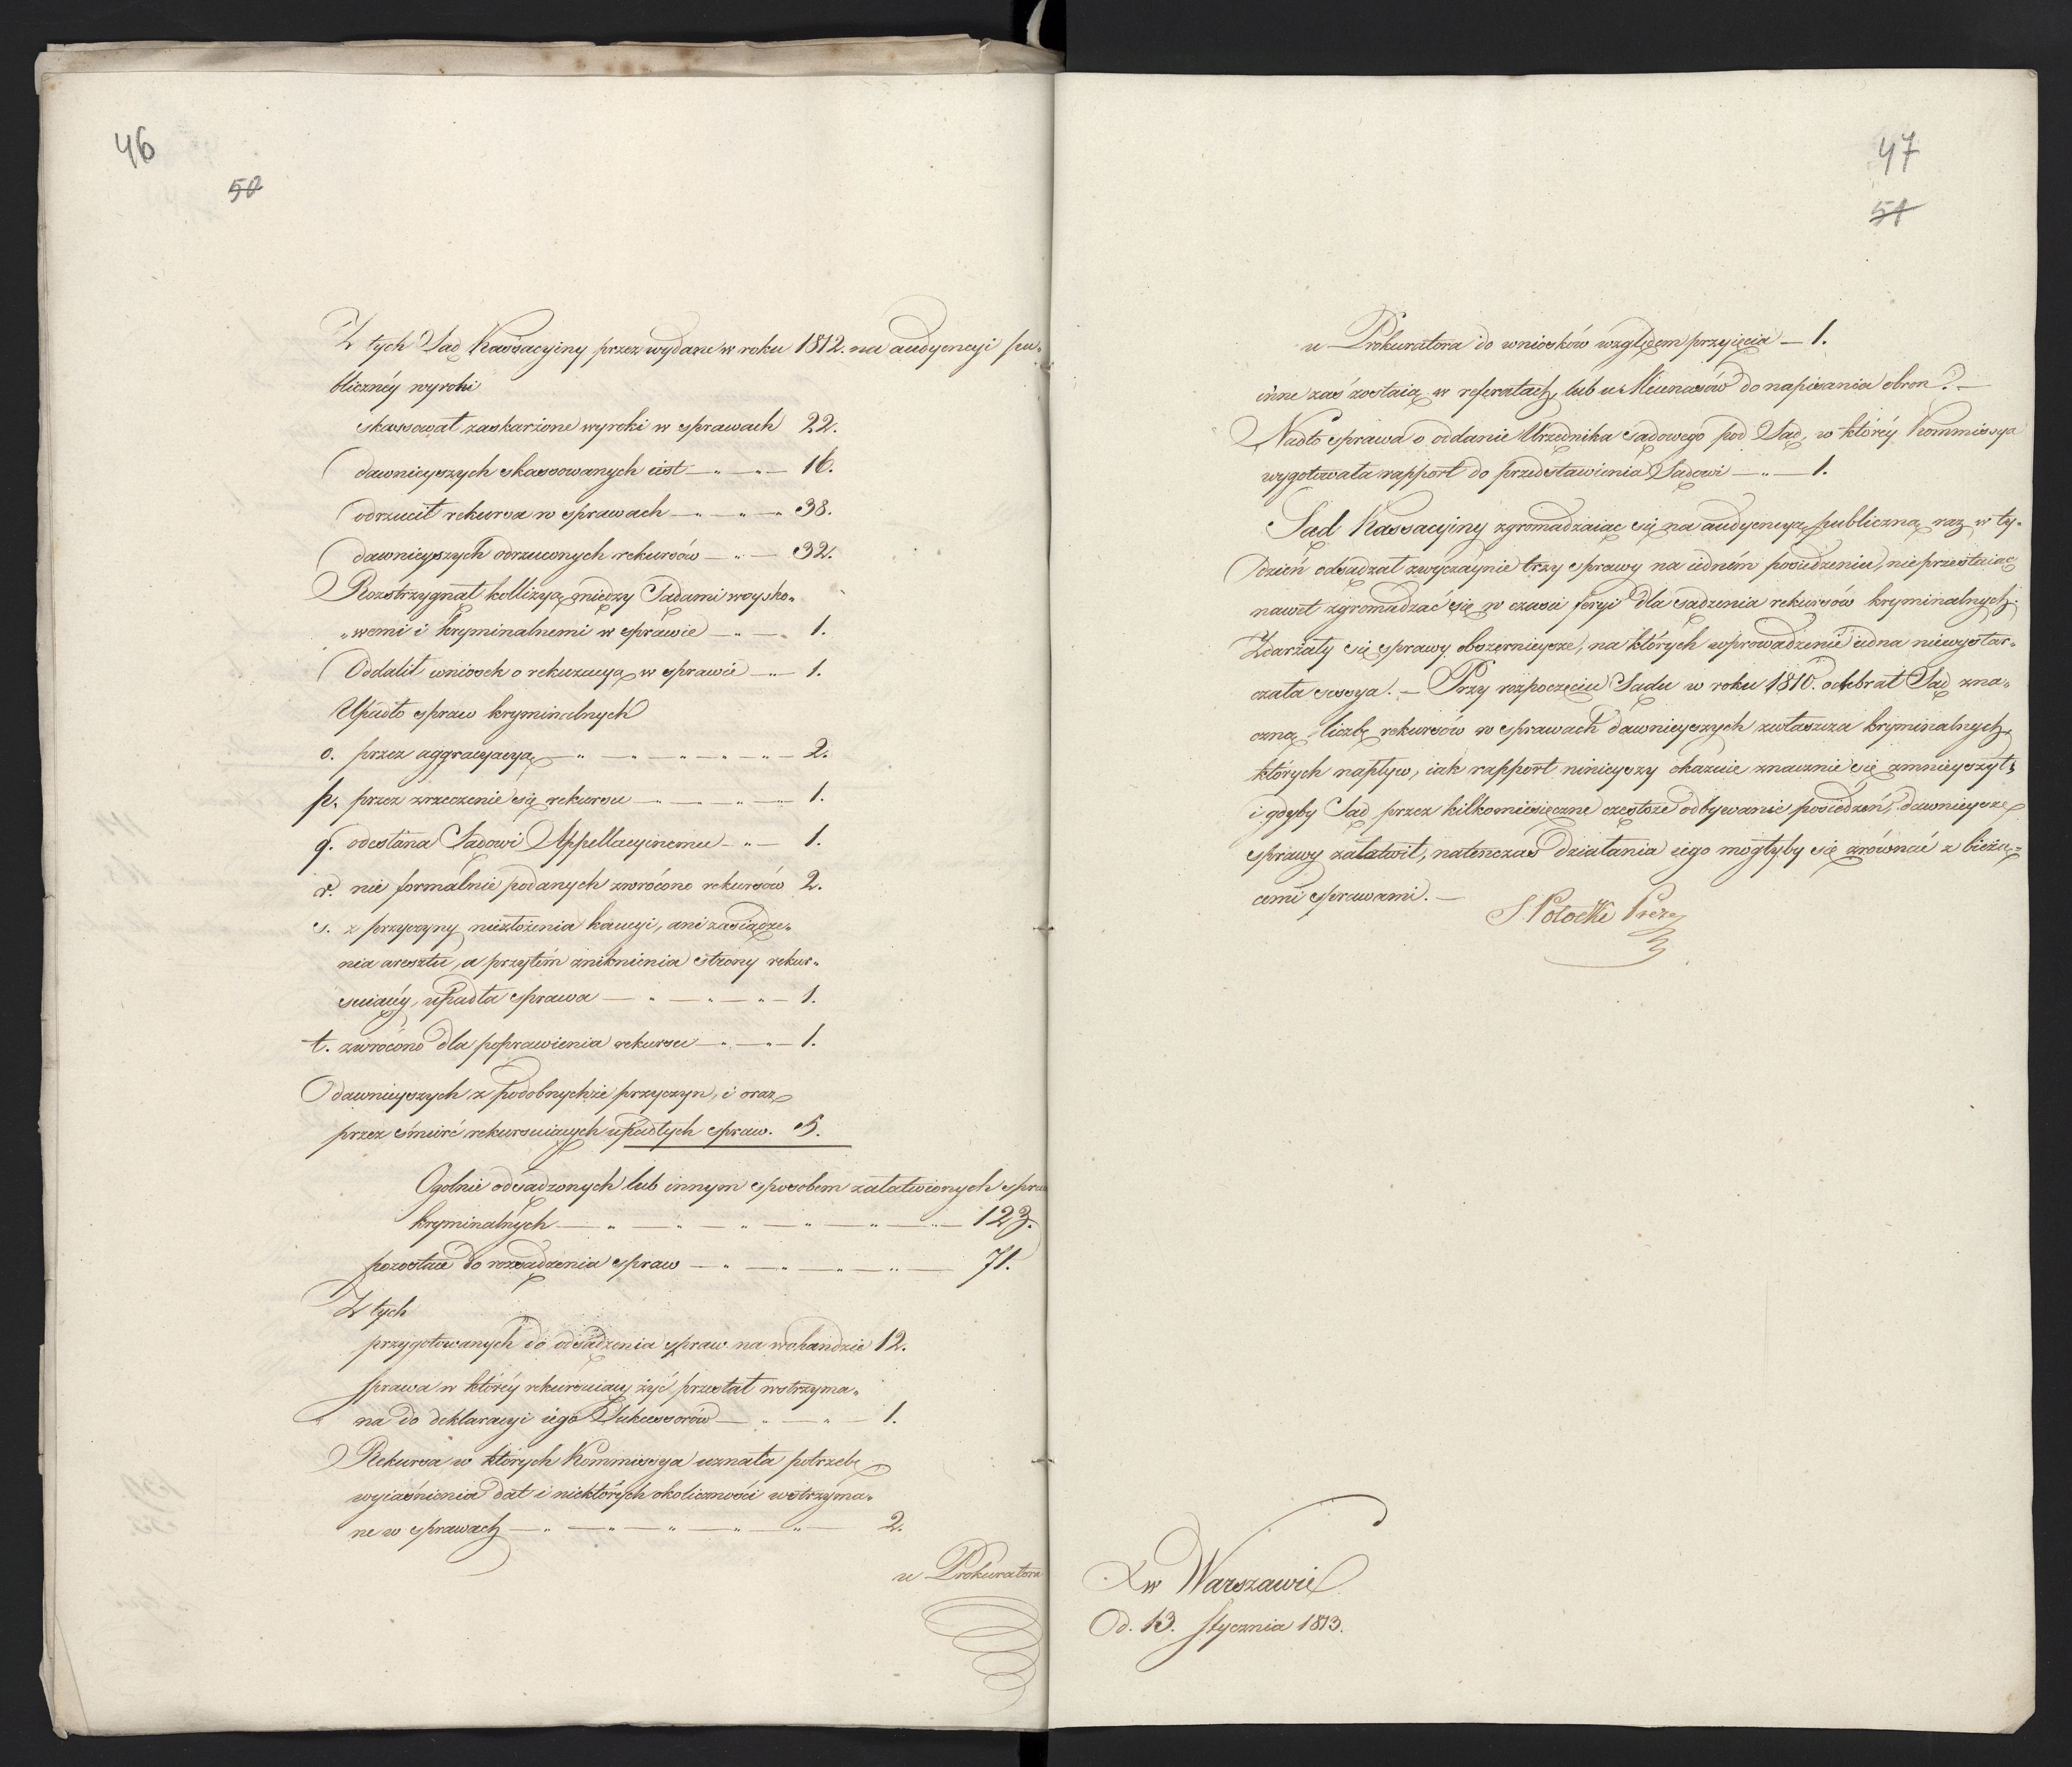 46
50
Z tych Sąd Kassacyiny przez wydane w roku 1812. na audyencyi pu„
blicznéy wyroki
skassował zaskarżone wyroki w sprawach 22.
dawnieyszych skassowanych iest — „ — „ — 16.
odrzucił rekursa w sprawach — „ — „ — „ 38.
dawnieyszych odrzuconych rekursów — „ — 32.
Rozstrzygnął kollizyą między Sądami woysko„
„wemi i kryminalnemi w sprawie — „ — „ 1.
Oddalił wniosek o rekuzacyą w sprawie — „ — 1.
Upadło spraw kryminalnych
o. przez aggracyacyą — „ — „ — „ — „ — 2.
p. przez zrzeczenie się rekursu — „ — „ — 1.
q. odesłana Sądowi Appellacyinemu — „ — 1.
r. nie formálnie podanych zwrócono rekursów 2.
s. z przyczyny niezłożenia kaucyi, ani zasiądze„
nia aresztu, a przytém zniknienia strony rekur„
suiącéy, upadła sprawa — „ — „ — „ — 1.
t. zwrócono dla poprawienia rekursu — „ — „ — 1.
dawnieyszych z podobnychże przyczyn, i oraz
przez śmierć rekursuiących upadłych spraw. 5.
Ogolnie odsądzonych lub innym sposobem załatwionych spra
kryminalnych — „ — „ — „ — „ — „ — „ — 123.
pozostaie do rozsądzenia spraw — „ — „ — „ — „ — 71.
Z tych
przygotowanych do odsądzenia spraw na wokandzie 12.
sprawa w któréy rekursuiący żyć przestał wstrzyma„
na do deklaracyi iego Sukcessorów — „ — „ — 1.
Rekursa w których Kommissya uznała potrzebę
wyiaśnienia dat i niektórych okoliczności wstrzyma„
ne w sprawach — „ — „ — „ — „ — „ — 2.
u Prokuratora
47
51
u Prokuratora do wniosków względem przyięcia — 1.
inne zaś zostaią w referatach, lub u Mecenasów do napisania obron. —
Nadto sprawa o oddanie Urzędnika sądowego pod Sąd, w któréy Kommissya
wygotowała rapport do przedstawienia Sądowi — „ — 1.
Sąd Kassacyiny zgromadzaiąc się na audyencyą publiczną raz w ty„
dzień odsądzał zwyczaynie trzy sprawy na iedném posiedzeniu, nie przestaiąc
nawet zgromadzać się w czasie feryi dla sądzenia rekursów kryminalnych.
Zdarzały się sprawy obszernieysze, na których wprowadzenie iedna niewystar„
czała sessya. — Przy rozpoczęciu Sądu w roku 1810. odebrał Sąd zna„
czną liczbę rekursów w sprawach dawnieyszych zwłaszcza kryminalnych,
których napływ, iak rapport ninieyszy okazuie znacznie się zmnieyszył,
i gdyby Sąd przez kilkomiesięczne częstsze odbywanie posiedzeń, dawnieysze
sprawy załatwił, natenczas działania iego mogłyby się zrównać z bieżą„
cemi sprawami. —
S Potocki Prezes
w Warszawie
d. 13. Stycznia 1813.